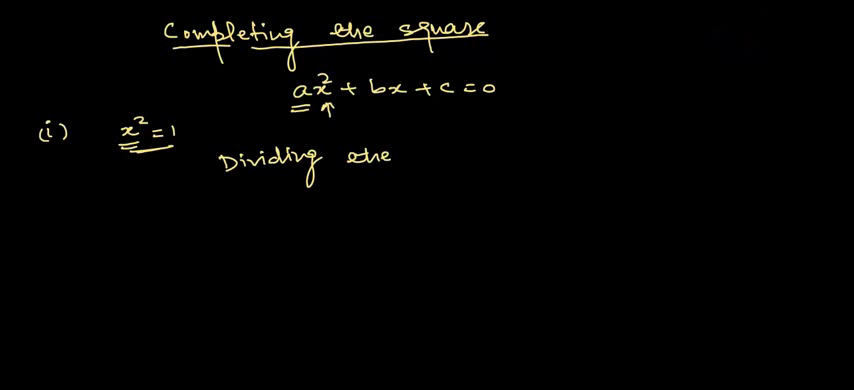 Completing the square
ax² + bx + c = 0
(i) x² = 1
Dividing the